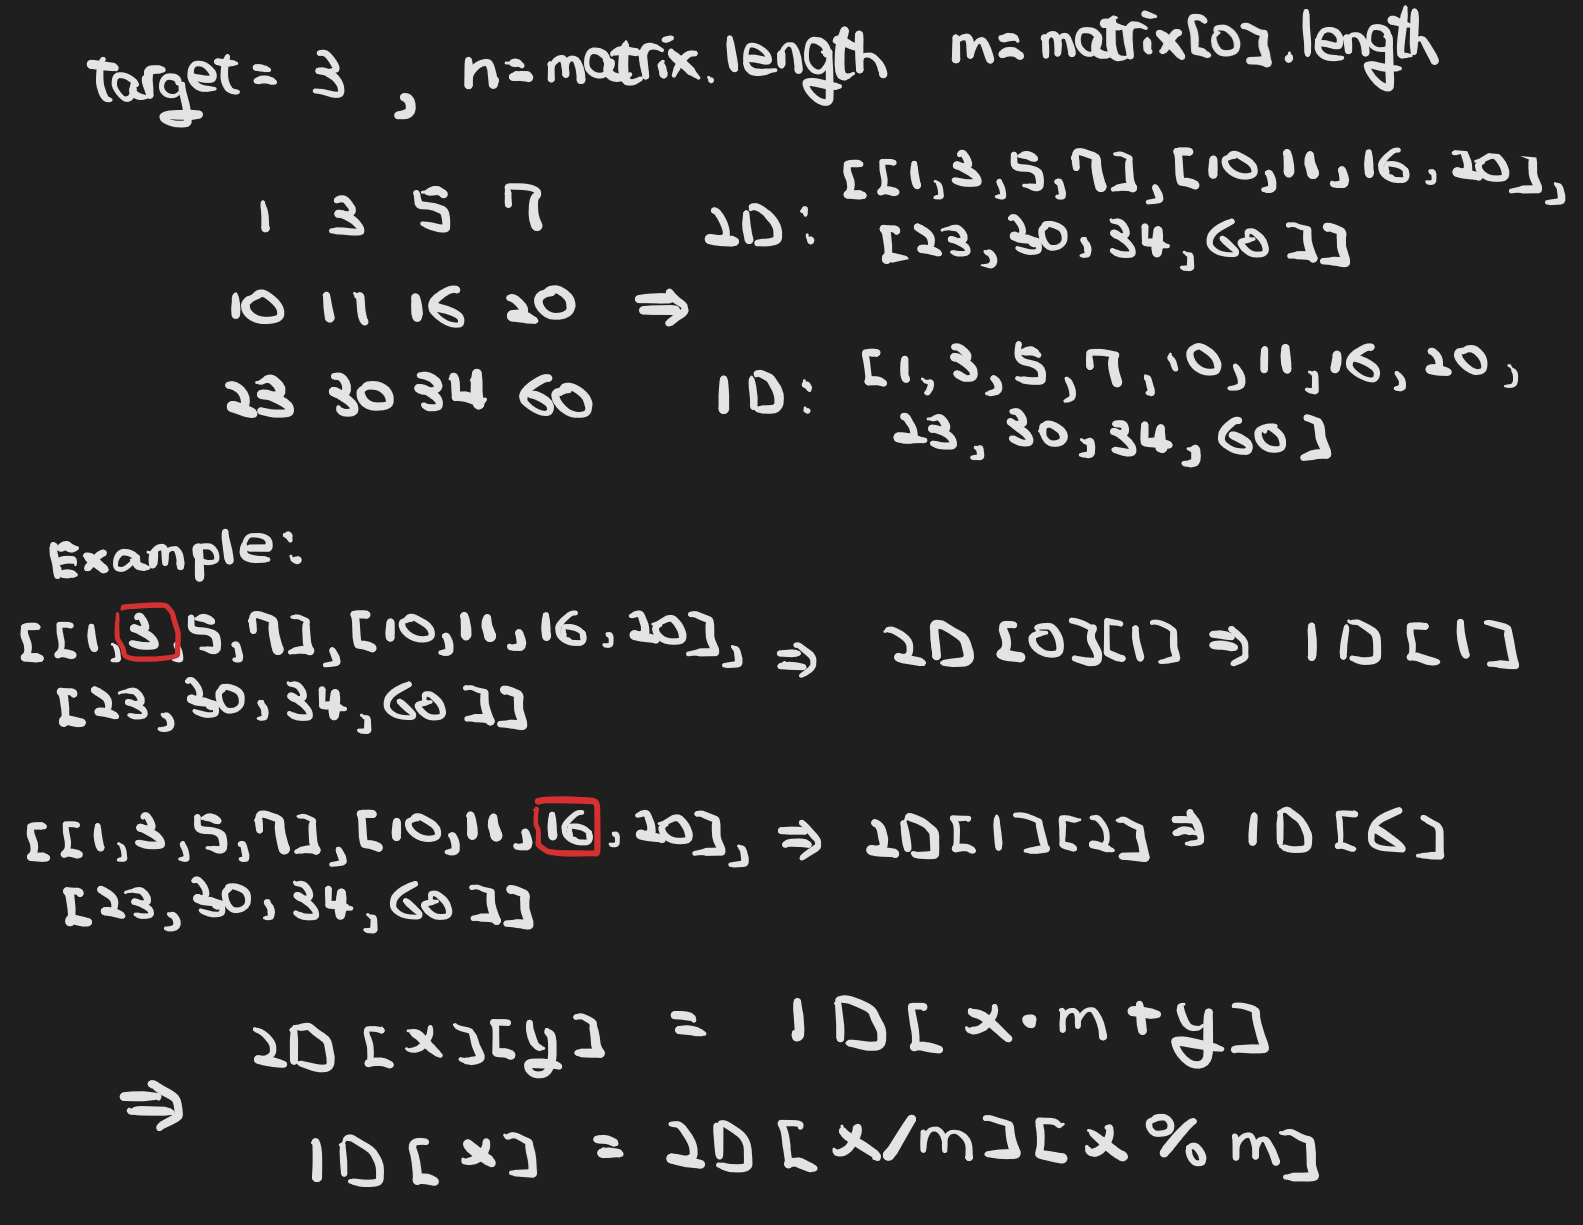 target = 3 , n = matrix.length m = matrix[0].length
1 3 5 7
10 11 16 20
23 30 34 60
⇒
2D: [[1,3,5,7],[10,11,16,20],
[23,30,34,60]]
1D: [1,3,5,7,10,11,16,20,
23,30,34,60]
Example:
[[1,3,5,7],[10,11,16,20], ⇒ 2D[0][1] ⇒ 1D[1]
[23,30,34,60]]
[[1,3,5,7],[10,11,16,20], ⇒ 2D[1][2] ⇒ 1D[6]
[23,30,34,60]]
2D[x][y] = 1D[x·m+y]
⇒
1D[x] = 2D[x/m][x%m]